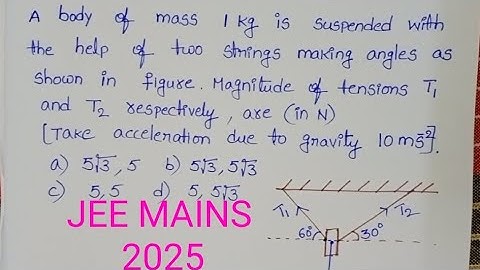 A body of mass 1 kg is suspended with
the help of two strings making angles as
shown in figure. Magnitude of tensions T₁
and T₂ respectively, are (in N)
[Take acceleration due to gravity 10 ms⁻²].
a) 5√3, 5 b) 5√3, 5√3
c) 5, 5 d) 5, 5√3
T₁ T₂
60° 30°
JEE MAINS
2025